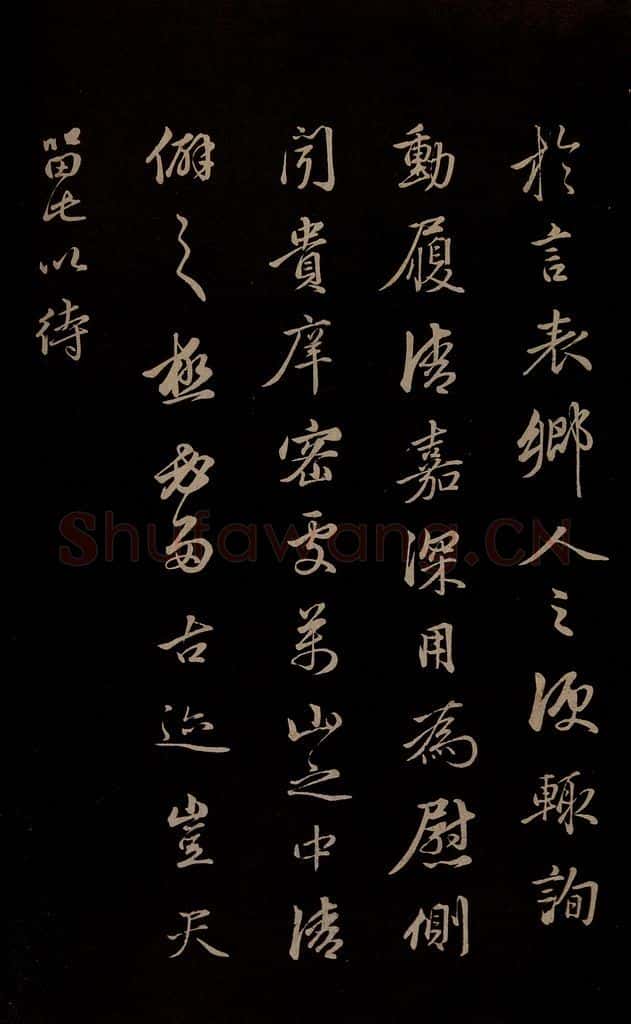 於言表鄉人之便輒詢
動履清嘉深用為慰側
聞貴庠密處萬山之中清
僻之極如多古迹豈天
留此以待
Shufawang.CN